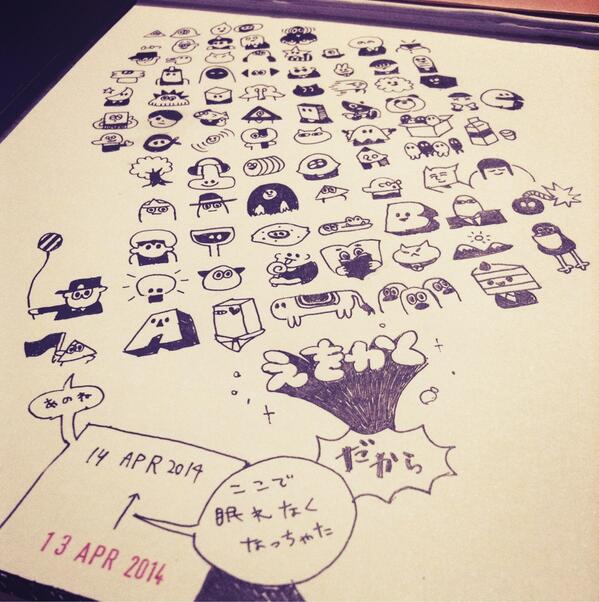 えをかくと
だから
あのね
14 APR 2014
ここで
眠れなく
なっちゃた
13 APR 2014